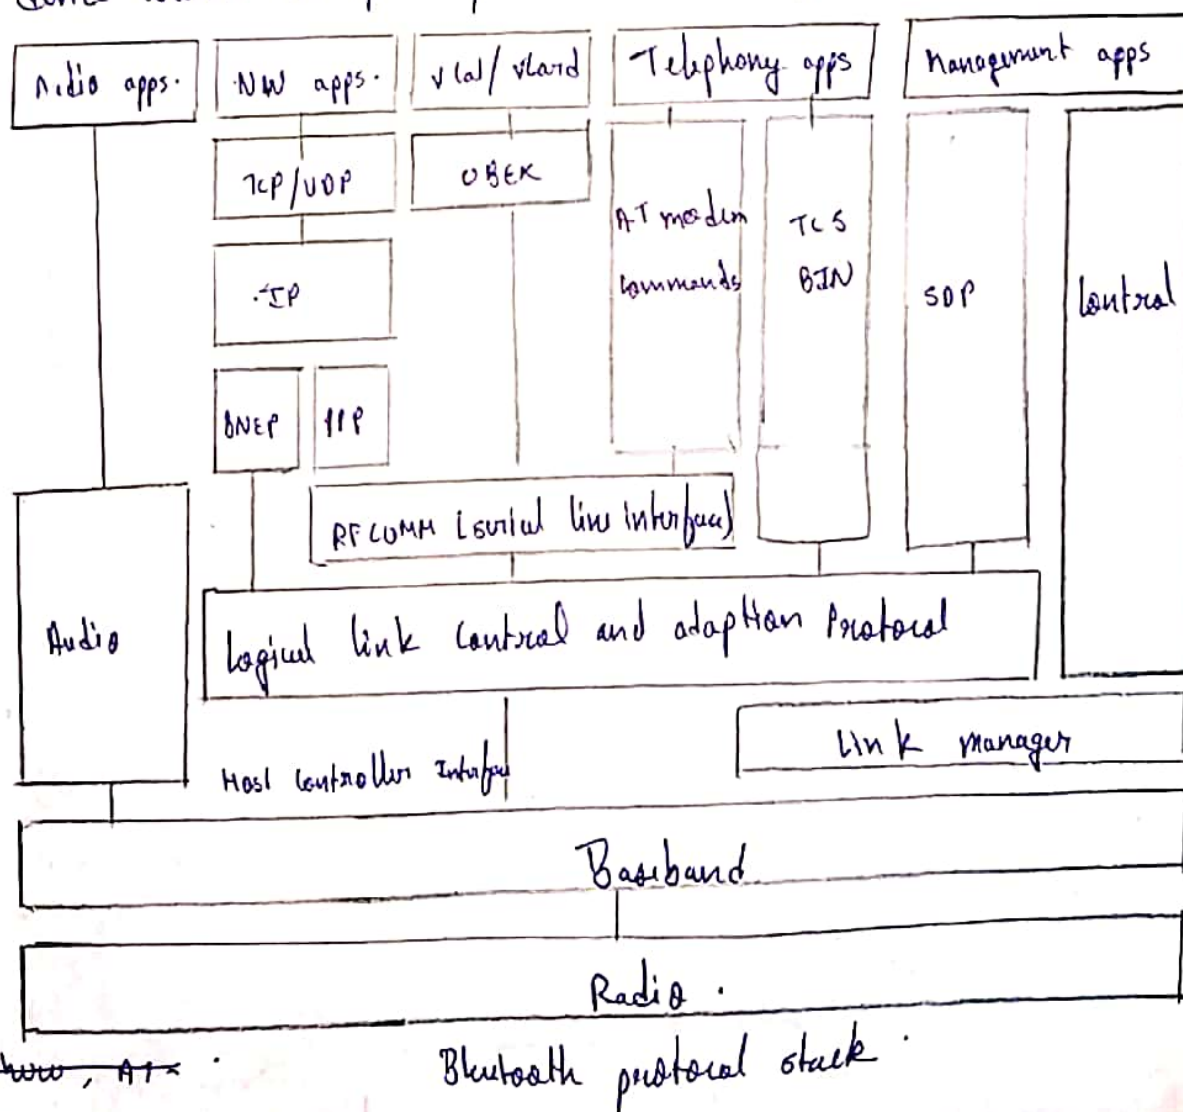 Audio apps.
NW apps.
vCal/vCard
Telephony apps
Management apps
TCP/UDP
OBEX
AT modem
commands
TCS
BIN
SDP
Control
IP
BNEP
PPP
RFCOMM (serial line interface)
Audio
Logical link Control and adaption Protocol
Link manager
Host Controller Interface
Baseband
Radio.
Bluetooth protocol stack.